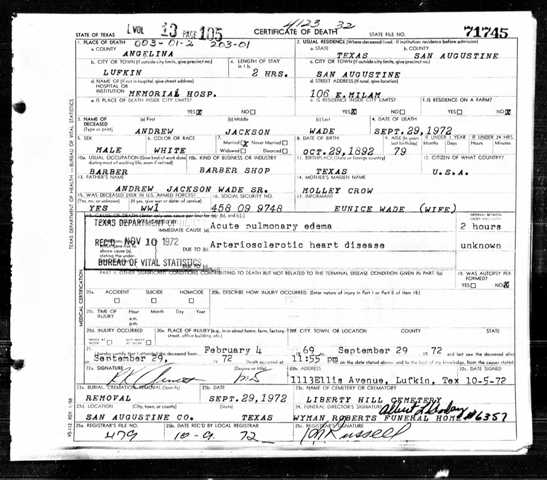 4123 32
STATE OF TEXAS VOL 13 PAGE 105 CERTIFICATE OF DEATH 71745
1. PLACE OF DEATH 003-01-2 203-01 2. USUAL RESIDENCE (Where deceased lived. If institution: residence before admission)
a. COUNTY ANGELINA a. STATE TEXAS b. COUNTY SAN AUGUSTINE
b. CITY OR TOWN (If outside city limits, give precinct no.) c. LENGTH OF STAY c. CITY OR TOWN (If outside city limits, give precinct no.)
LUFKIN 2 HRS. SAN AUGUSTINE
d. NAME OF (If not in hospital, give street address) HOSPITAL OR INSTITUTION MEMORIAL HOSP. d. STREET ADDRESS (If rural, give location) 106 E.MILAM
e. IS PLACE OF DEATH INSIDE CITY LIMITS? YES NO e. IS RESIDENCE INSIDE CITY LIMITS? YES NO f. IS RESIDENCE ON A FARM? YES NO
3. NAME OF DECEASED (Type or print) (a) First (b) Middle (c) Last 4. DATE OF DEATH
ANDREW JACKSON WADE SEPT.29,1972
5. SEX 6. COLOR OR RACE 7. Married Never Married Widowed Divorced 8. DATE OF BIRTH
MALE WHITE OCT.29,1892 79
10a. USUAL OCCUPATION 10b. KIND OF BUSINESS OR INDUSTRY 11. BIRTHPLACE (State or foreign country) 12. CITIZEN OF WHAT COUNTRY?
BARBER BARBER SHOP TEXAS U.S.A.
13. FATHER'S NAME 14. MOTHER'S MAIDEN NAME
ANDREW JACKSON WADE SR. MOLLEY CROW
15. WAS DECEASED EVER IN U.S. ARMED FORCES?
YES WWI 458 09 9748 EUNICE WADE (WIFE)
TEXAS DEPARTMENT OF
IMMEDIATE CAUSE (a) Acute pulmonary edema 2 hours
REC'D NOV 10 1972 DUE TO (b) Arteriosclerotic heart disease unknown
BUREAU OF VITAL STATISTICS
PART II. OTHER SIGNIFICANT CONDITIONS CONTRIBUTING TO DEATH BUT NOT RELATED TO THE TERMINAL DISEASE CONDITION GIVEN IN PART I(a) 19. WAS AUTOPSY PERFORMED? YES NO
20a. ACCIDENT SUICIDE HOMICIDE 20b. DESCRIBE HOW INJURY OCCURRED. (Enter nature of injury in Part I or Part II of item 18)
20c. TIME OF INJURY Hour Month Day Year
20d. INJURY OCCURRED 20e. PLACE OF INJURY 20f. CITY, TOWN, OR LOCATION COUNTY STATE
21. I hereby certify that I attended the deceased from February 4 69 September 29 72
September 29, 72 11:55 PM
22a. SIGNATURE 1113 Ellis Avenue, Lufkin, Tex 10-5-72
23a. BURIAL, CREMATION, REMOVAL 23b. DATE 23c. NAME OF CEMETERY OR CREMATORY
REMOVAL SEPT.29,1972 LIBERTY HILL CEMETERY
23d. LOCATION (City, town, or county) (State) 24. FUNERAL DIRECTOR'S SIGNATURE
SAN AUGUSTINE CO. TEXAS WYMAN ROBERTS FUNERAL HOME #6357
25a. REGISTRAR'S FILE NO. 25b. DATE REC'D BY LOCAL REGISTRAR 25c. REGISTRAR'S SIGNATURE
479 10-9- 72 Russell